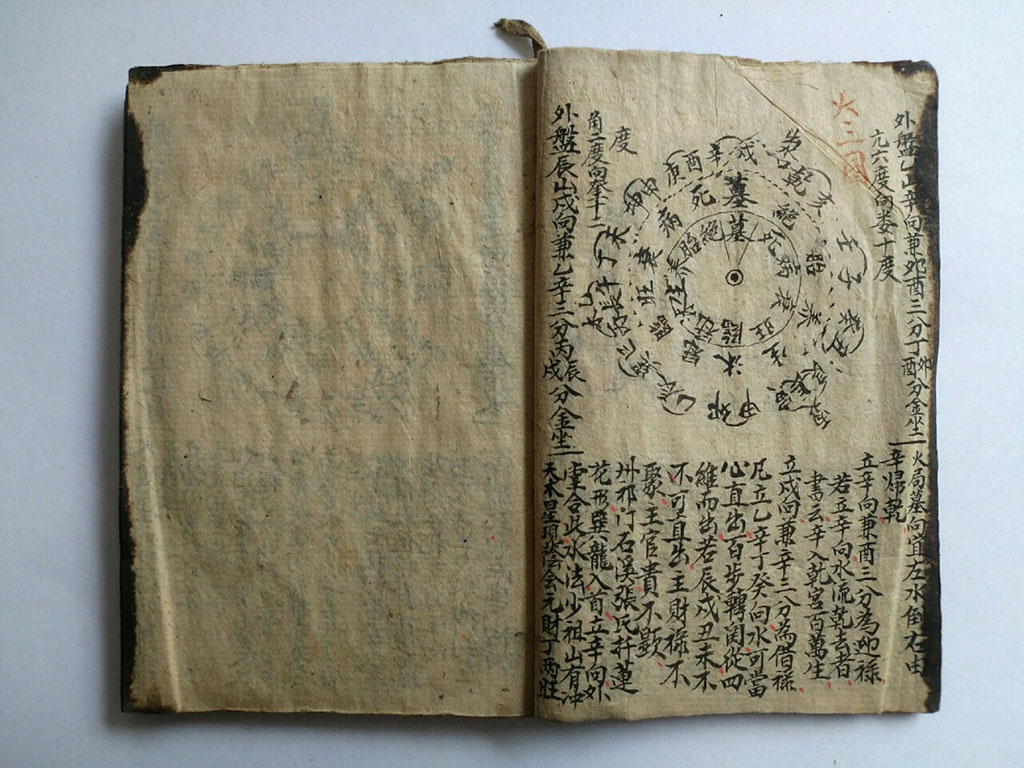 外盤乙山辛向兼卯酉三分丁卯丁酉分金坐
亢六度向婁十度
火三局
戌
辛
酉
庚
申
丁
未
乾
亥
壬
子
癸
甲
卯
墓
死
病
衰
旺
臨
沐
生
養
胎
絕
墓
絕
胎
養
生
沐
冠
臨
旺
衰
病
死
度
角二度向奎十二
外盤辰山戌向兼乙辛三分丙辰丙戌分金坐
火局墓向宜左水倒右由
辛歸乾
立辛向兼酉三分為迎祿
若立辛向水流乾去者
書云辛入乾宮百萬生
立戌向兼辛三分為借祿
凡立乙辛丁癸向水可當
心直出百步轉関從四
維而出若辰戌丑未不
不可直出主財祿不
聚主官貴不顯
州邗门石溪張氏扦蓮
花形巽龍入首立辛向外
堂合此水法少祖山有冲
天木星現蔭会元財丁两旺